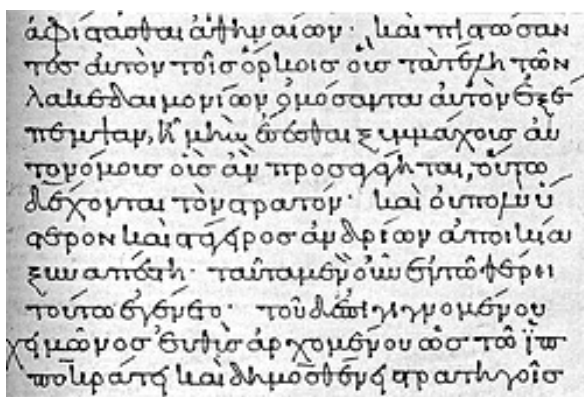 ἀφίστασθαι ἀθηναίων· καὶ πιστώσαν
τες αὐτὸν τοῖς ὅρκοις οὓς τὰ τέλη τῶν
λακεδαιμονίων ὀμόσαντα αὐτὸν ἐξέ
πεμψαν, ἦ μὴν ἔσεσθαι ξυμμάχους αὐ
τονόμους οὓς ἂν προσαγάγηται, οὕτω
δέχονται τὸν στρατόν· καὶ οὐ πολὺ ὕ
στερον καὶ στάγειρος ἀνδρίων ἀποικία
ξυναπέστη· ταῦτα μὲν οὖν ἐν τῷ θέρει
τούτω ἐγένετο· τοῦ δ' ἐπιγιγνομένου
χειμῶνος εὐθὺς ἀρχομένου ὡς τῶ ἱπ
ποκράτει καὶ δημοσθένει στρατηγοῖς